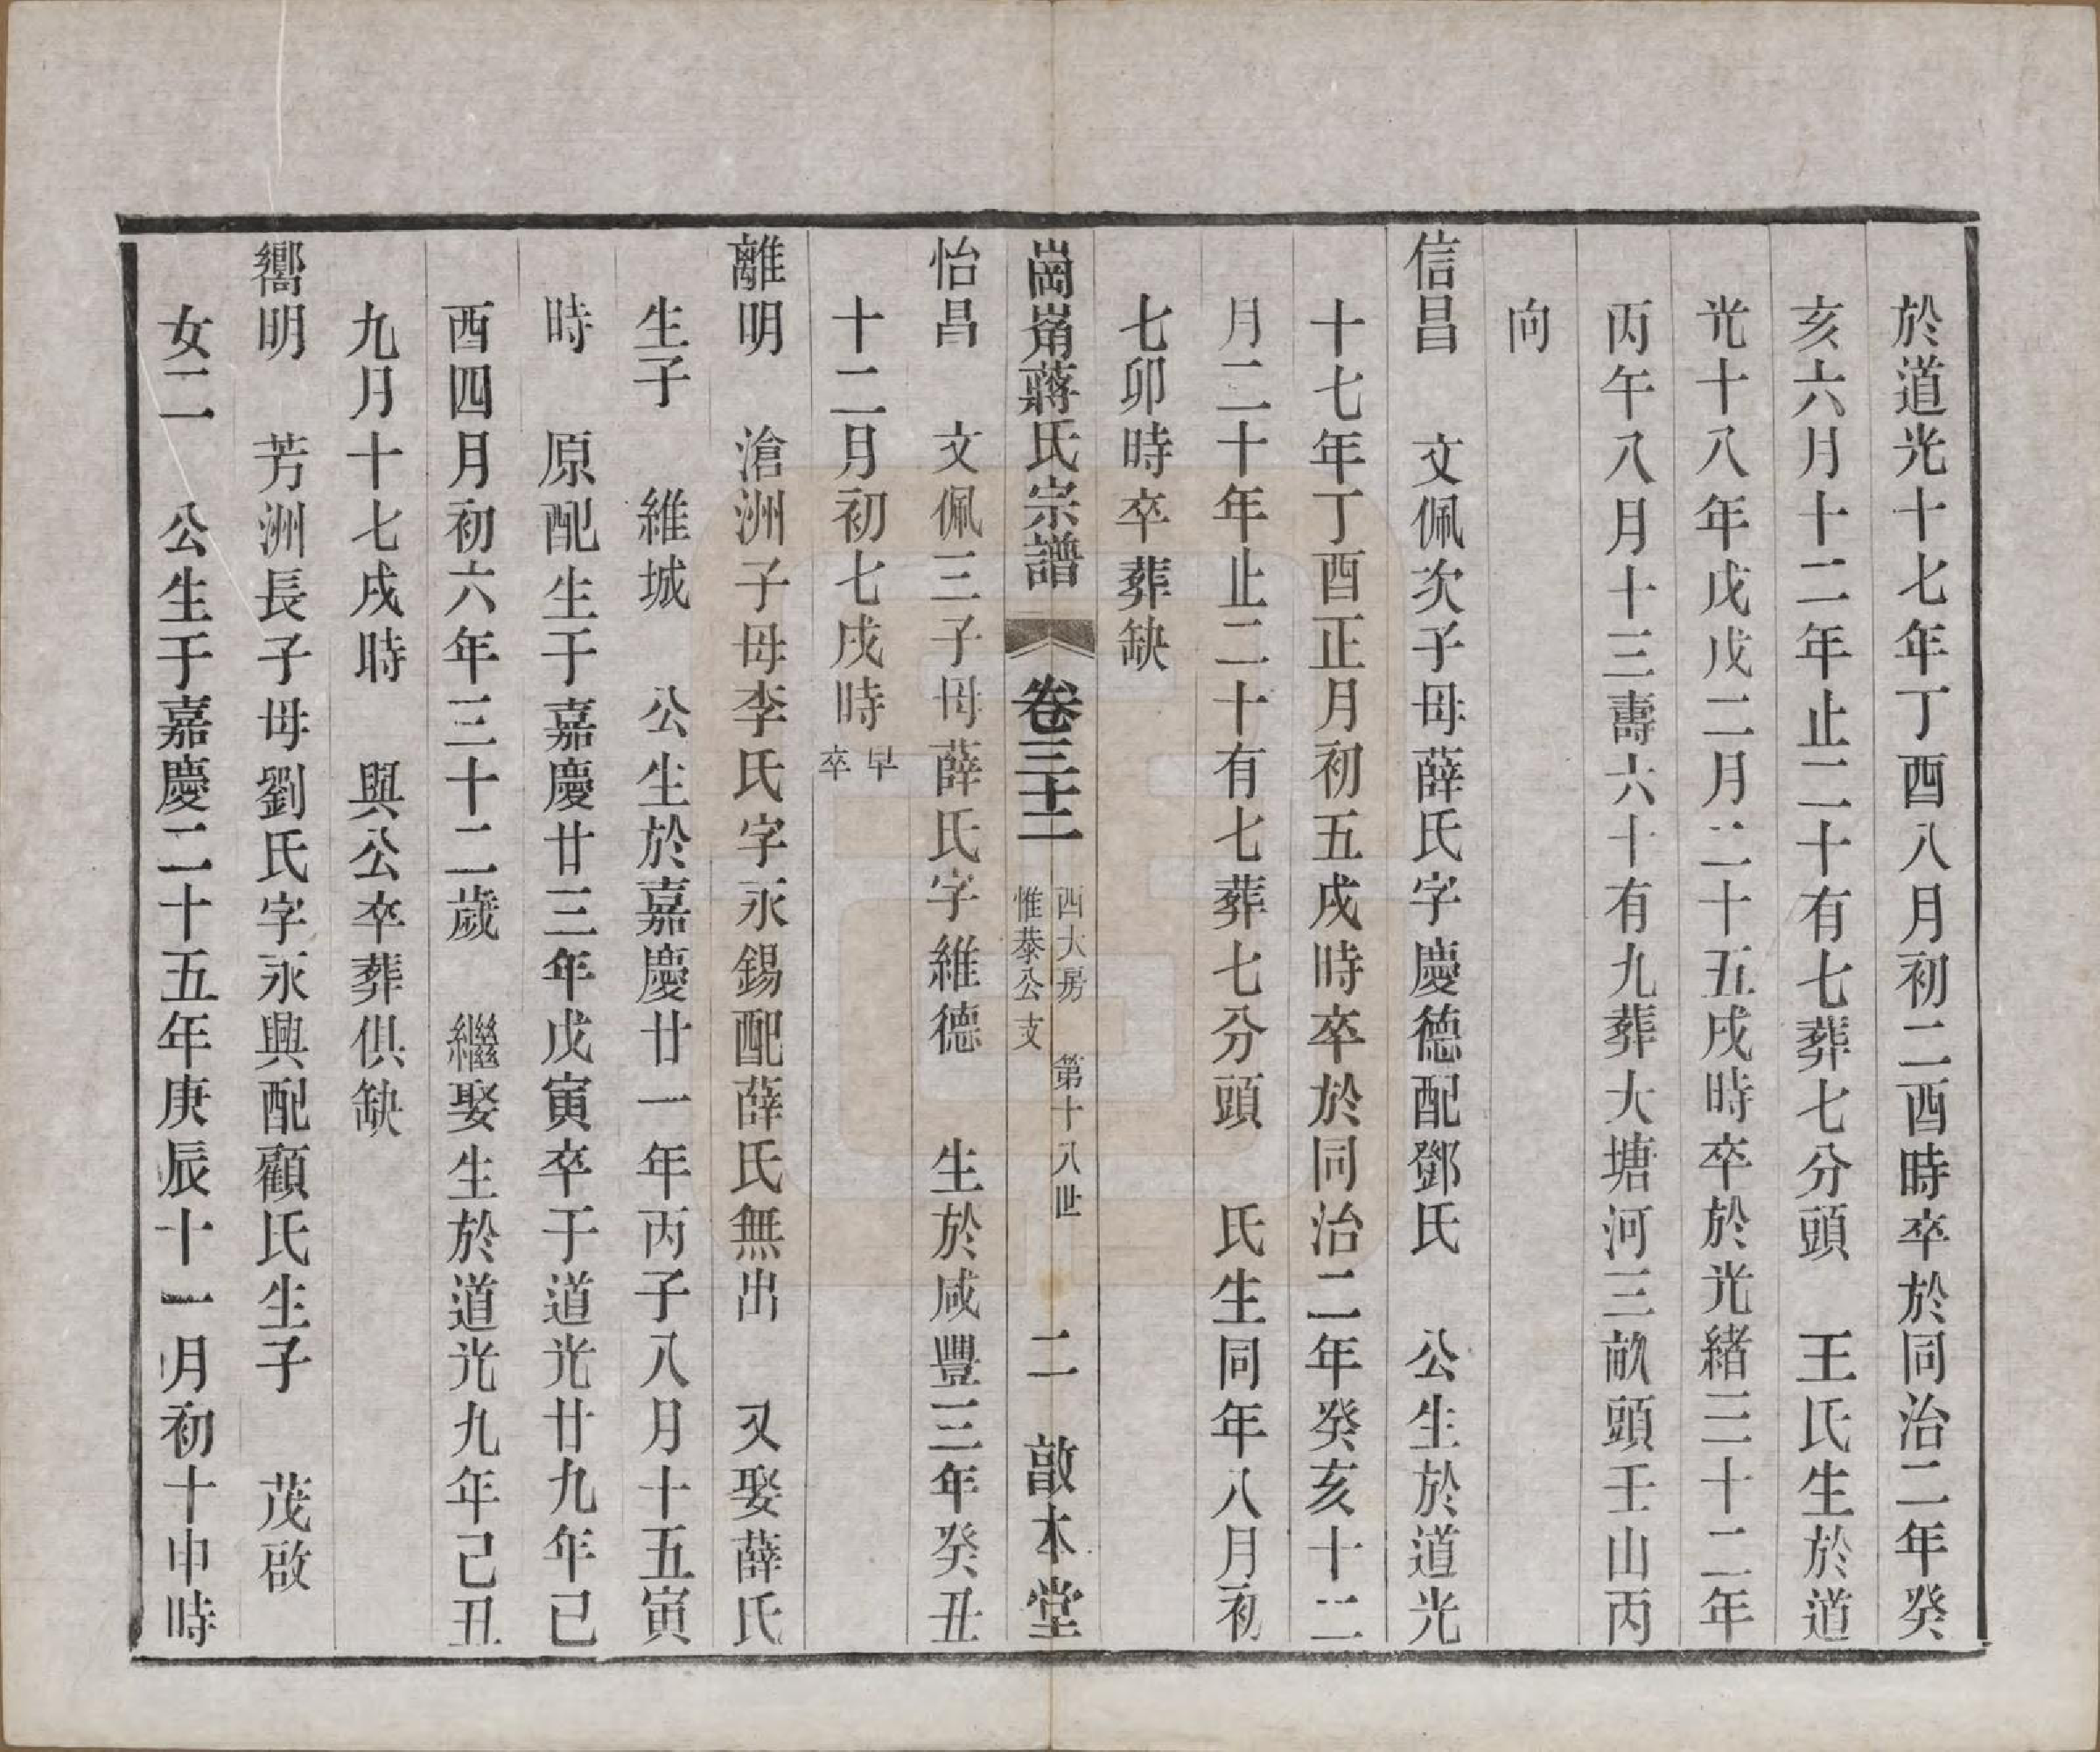 於道光十七年丁酉八月初二酉時卒於同治二年癸
亥六月十二年止二十有七葬七分頭　王氏生於道
光十八年戊戌二月二十五戌時卒於光緒三十二年
丙午八月十三壽六十有九葬大塘河三畝頭壬山丙
向
信昌　文佩次子母薛氏字慶德配鄧氏　公生於道光
十七年丁酉正月初五戌時卒於同治二年癸亥十二
月二十年止二十有七葬七分頭　氏生同年八月初
七卯時卒葬缺
崗嵛蔣氏宗譜　卷三十二　西大房惟恭公支　第十八世　二　敵本堂
怡昌　文佩三子母薛氏字維德　生於咸豐三年癸丑
十二月初七戌時早卒
離明　滄洲子母李氏字永錫配薛氏無出　又娶薛氏
生子　維城　公生於嘉慶廿一年丙子八月十五寅
時　原配生于嘉慶廿三年戊寅卒于道光廿九年己
酉四月初六年三十二歲　繼娶生於道光九年己丑
九月十七戌時　與公卒葬俱缺
嚮明　芳洲長子母劉氏字永興配顧氏生子　茂啟
女二　公生于嘉慶二十五年庚辰十一月初十申時